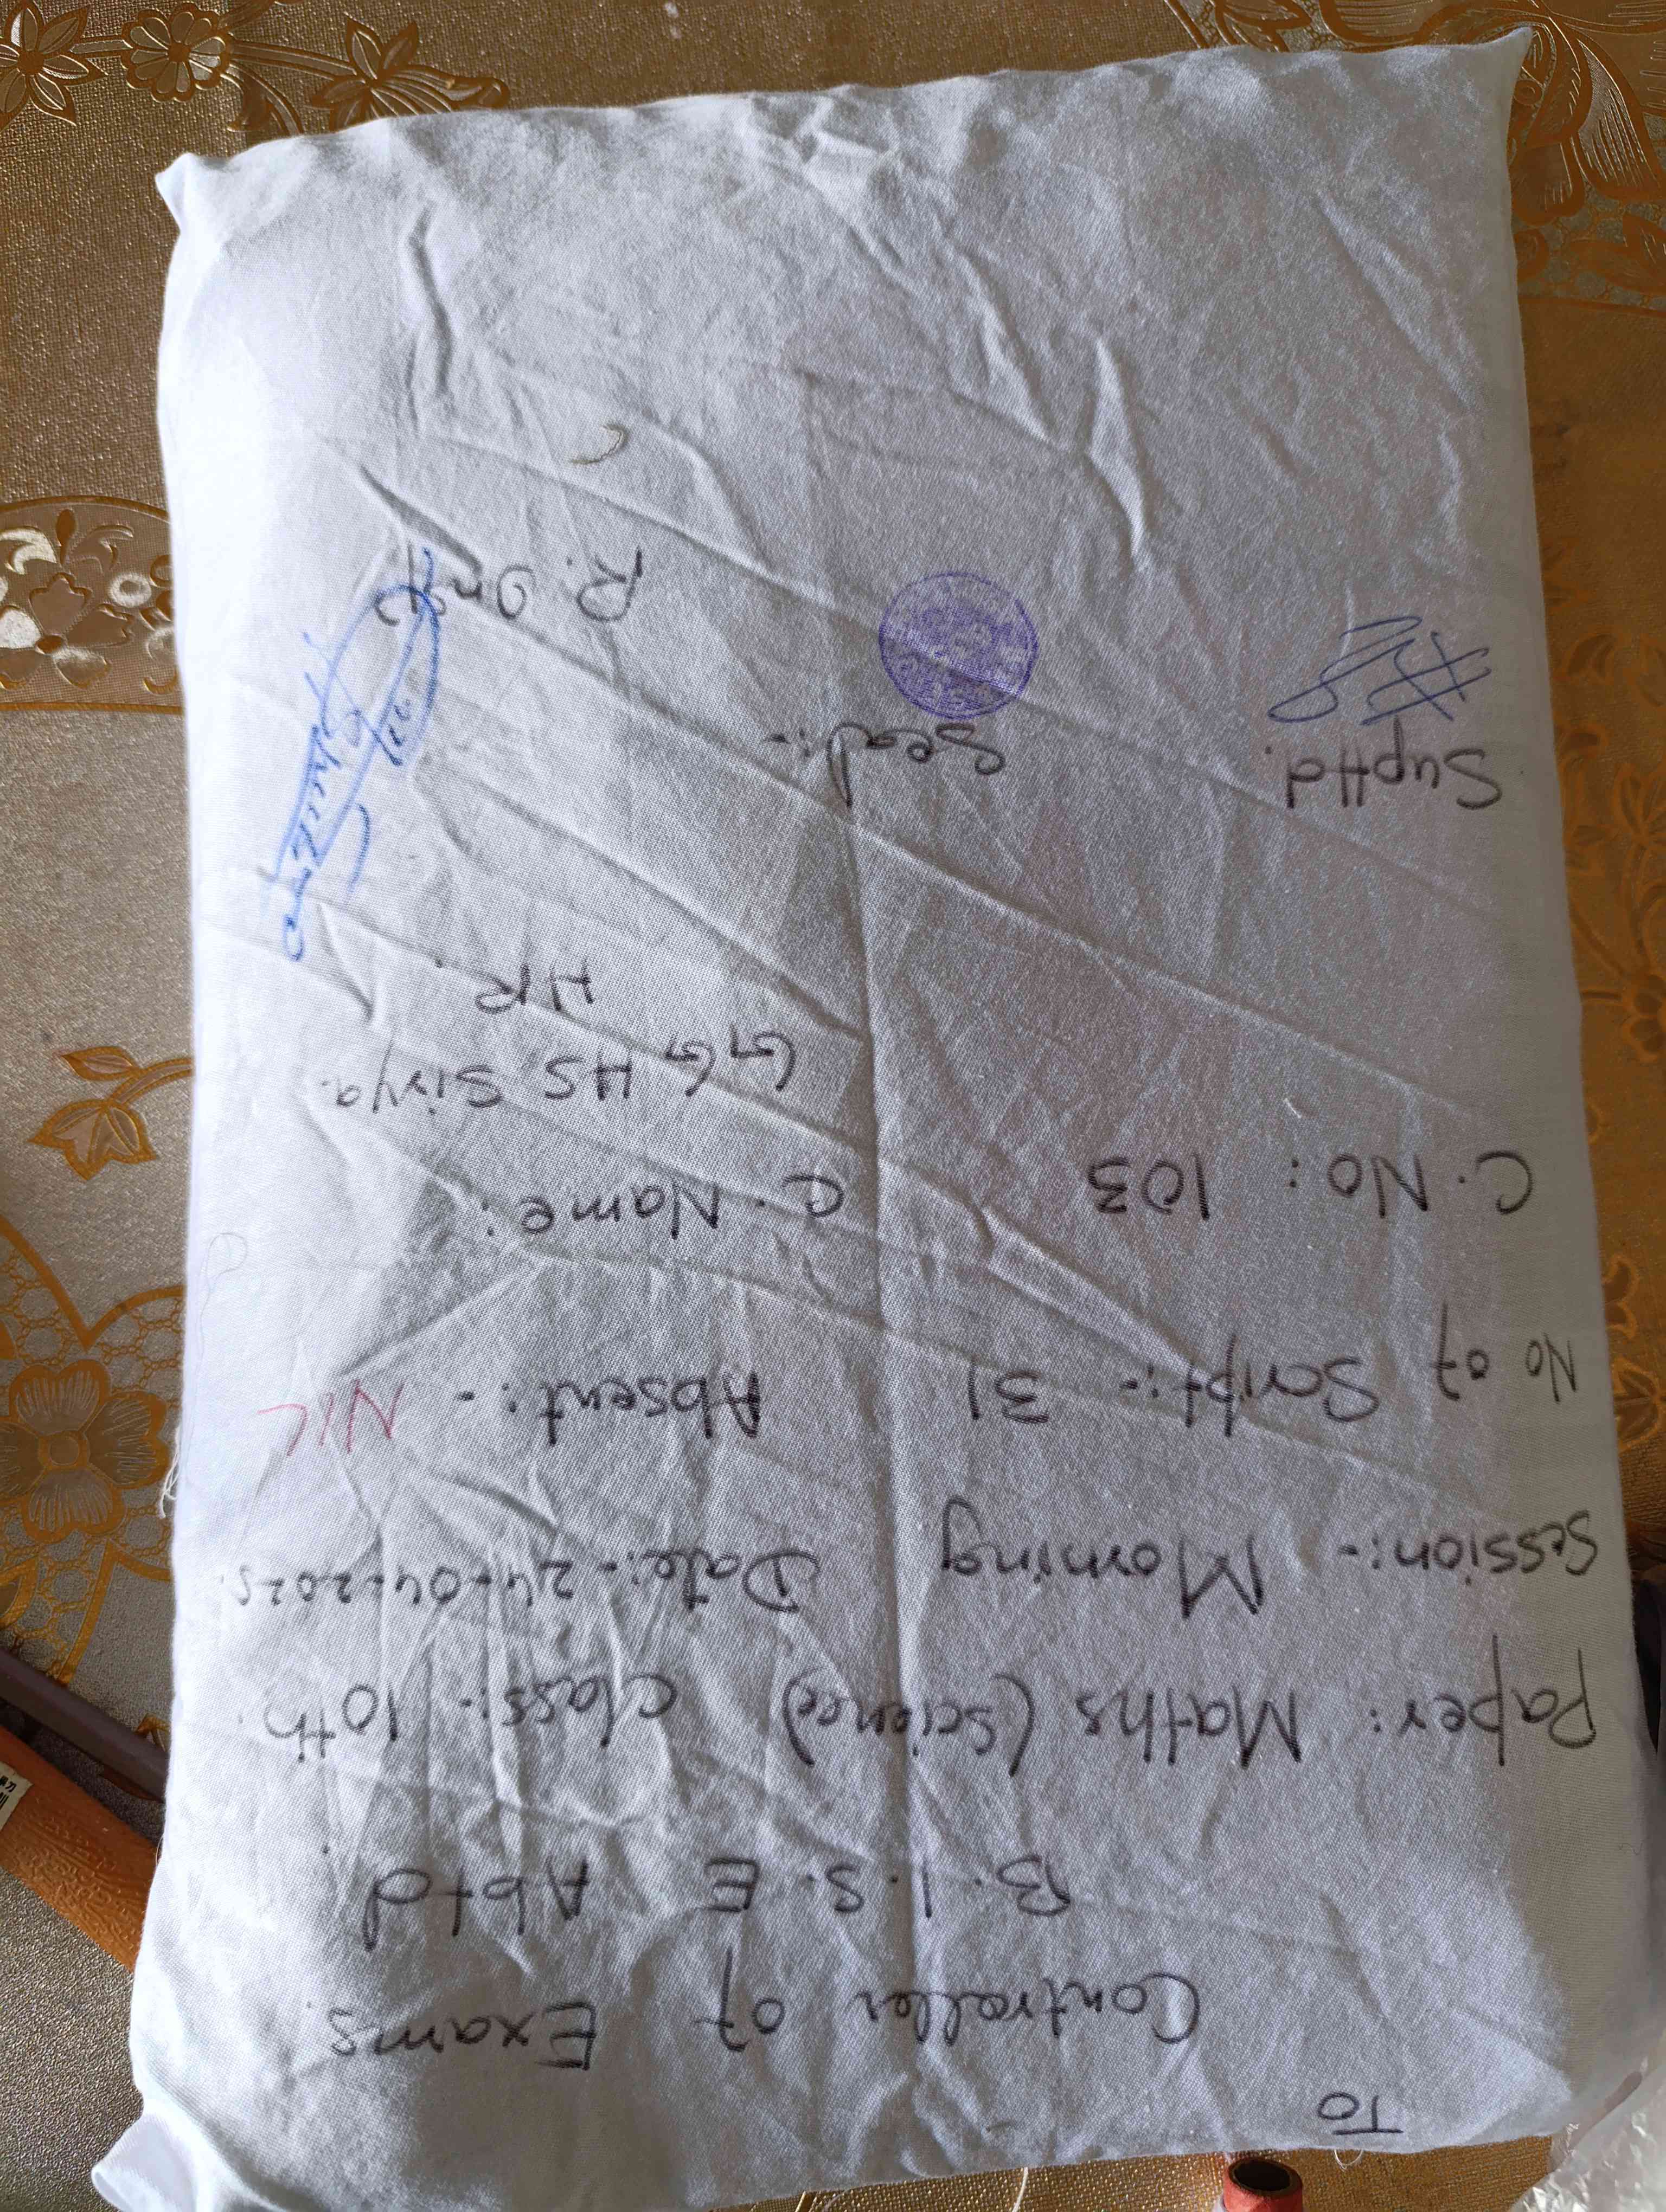 To
Controller of Exams.
B.I.S.E Abtd
Paper: Maths (science) class:- 10th.
Session:- Morning Date:- 24-04-2025.
No of Script:- 31 Absent:- NIL
C.No: 103 C. Name:
GGHS Sirya.
HR.
Suptd. Seal:-
R. Ins